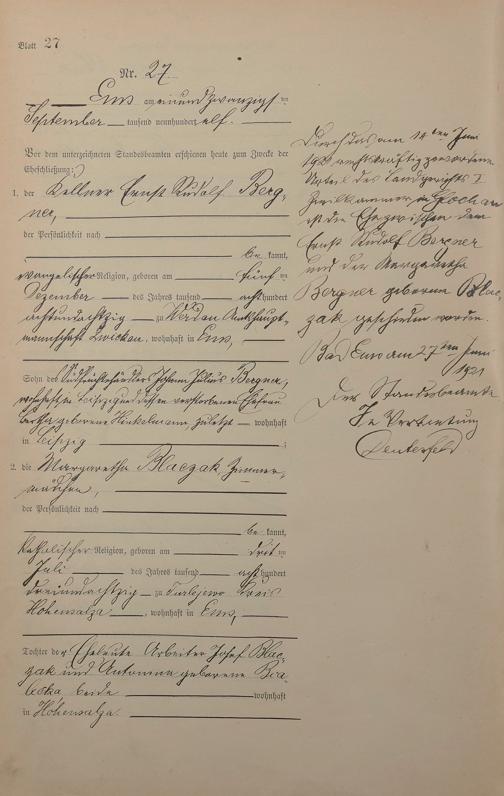 Blatt 27
Nr. 27
Ems am einundzwanzigsten
September tausend neunhundert elf.
Vor dem unterzeichneten Standesbeamten erschienen heute zum Zwecke der
Eheschließung:
1. der Kellner Ernst Rudolf Berg-
ner,
der Persönlichkeit nach
be kannt,
evangelischer Religion, geboren am fünften
Dezember des Jahres tausend acht hundert
achtundachtzig zu Werdau Amtshaupt-
mannschaft Zwickau, wohnhaft in Ems,
Sohn des Johann Julius Bergner,
wohnhaft in Leipzig und dessen verstorbenen Ehefrau
geborene Hinkelmann, zuletzt wohnhaft
in Leipzig ;
2. die Margaretha Blaczak, Zimmer-
mädchen,
der Persönlichkeit nach
be kannt,
katholischer Religion, geboren am dritten
Juli des Jahres tausend acht hundert
dreiundachtzig zu Kreis
Hohensalza, wohnhaft in Ems,
Tochter der Eheleute Arbeiter Josef Blac-
zak und Antonina geborene
beide wohnhaft
in Hohensalza.
Durch das am 14ten Juni
1921 rechtskräftig gewordene
Urteil des Landgerichts I
Zivilkammer
ist die Ehe zwischen dem
Ernst Rudolf Bergner
und der Margaretha
Bergner geborene Blac-
zak, geschieden worden.
Bad Ems am 27ten Juni
1921
Der Standesbeamte
In Vertretung